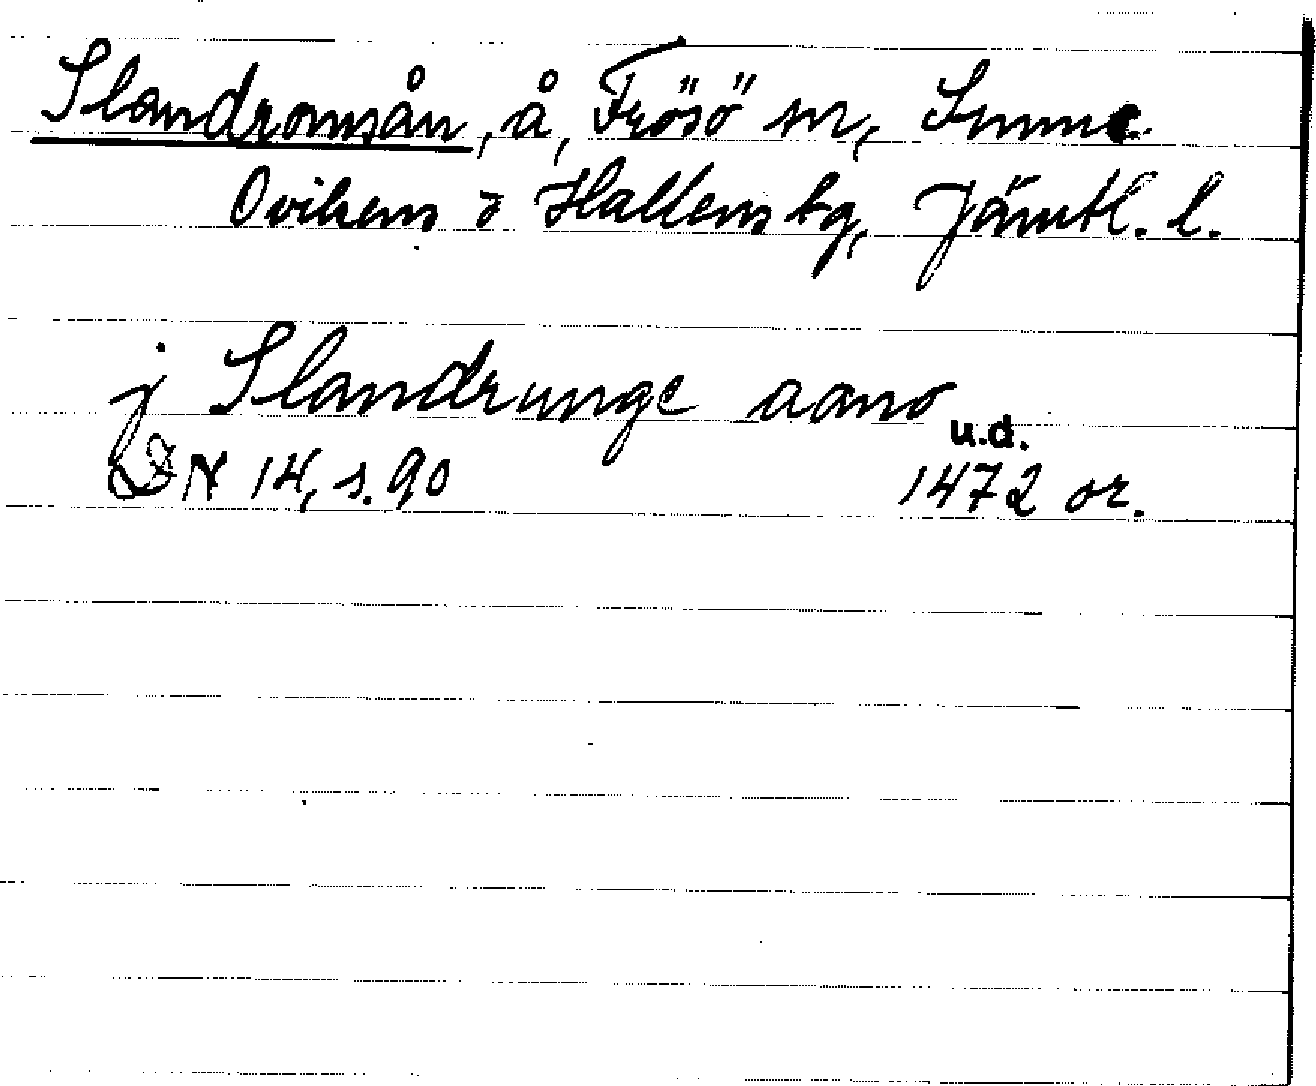 Slandromsån, å, Frösö sn, Sunne
Ovikens o Hallens tg, Jämtl. l.
j Slandrunge aano
u.d.
DN 14, s. 90 1472 or.